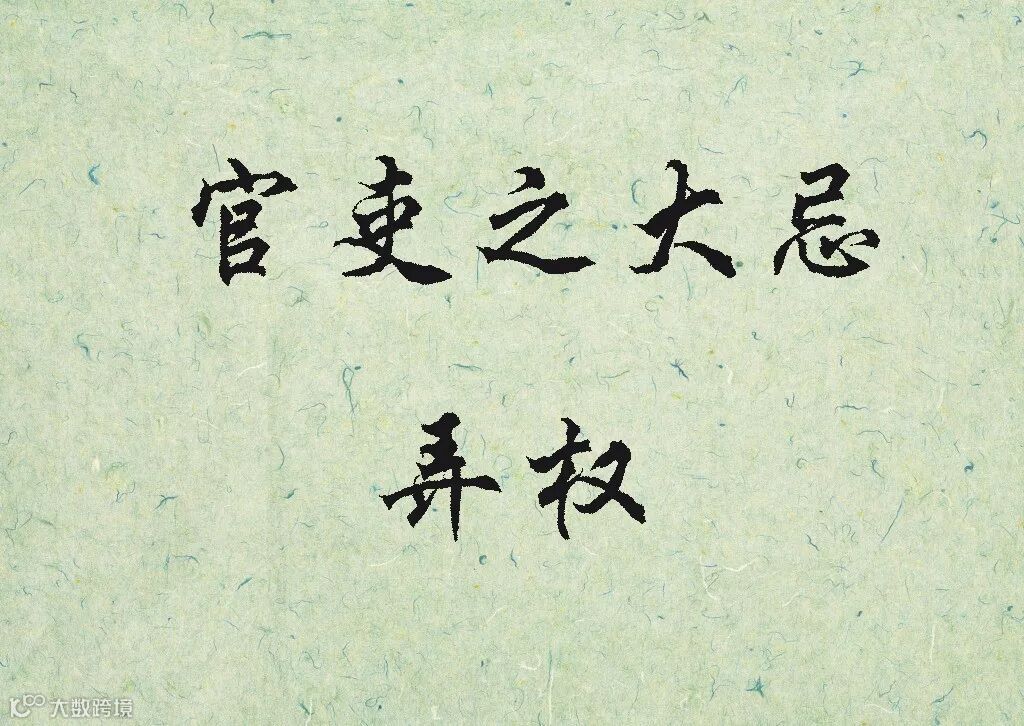 官吏之大忌
弄权
大数跨境